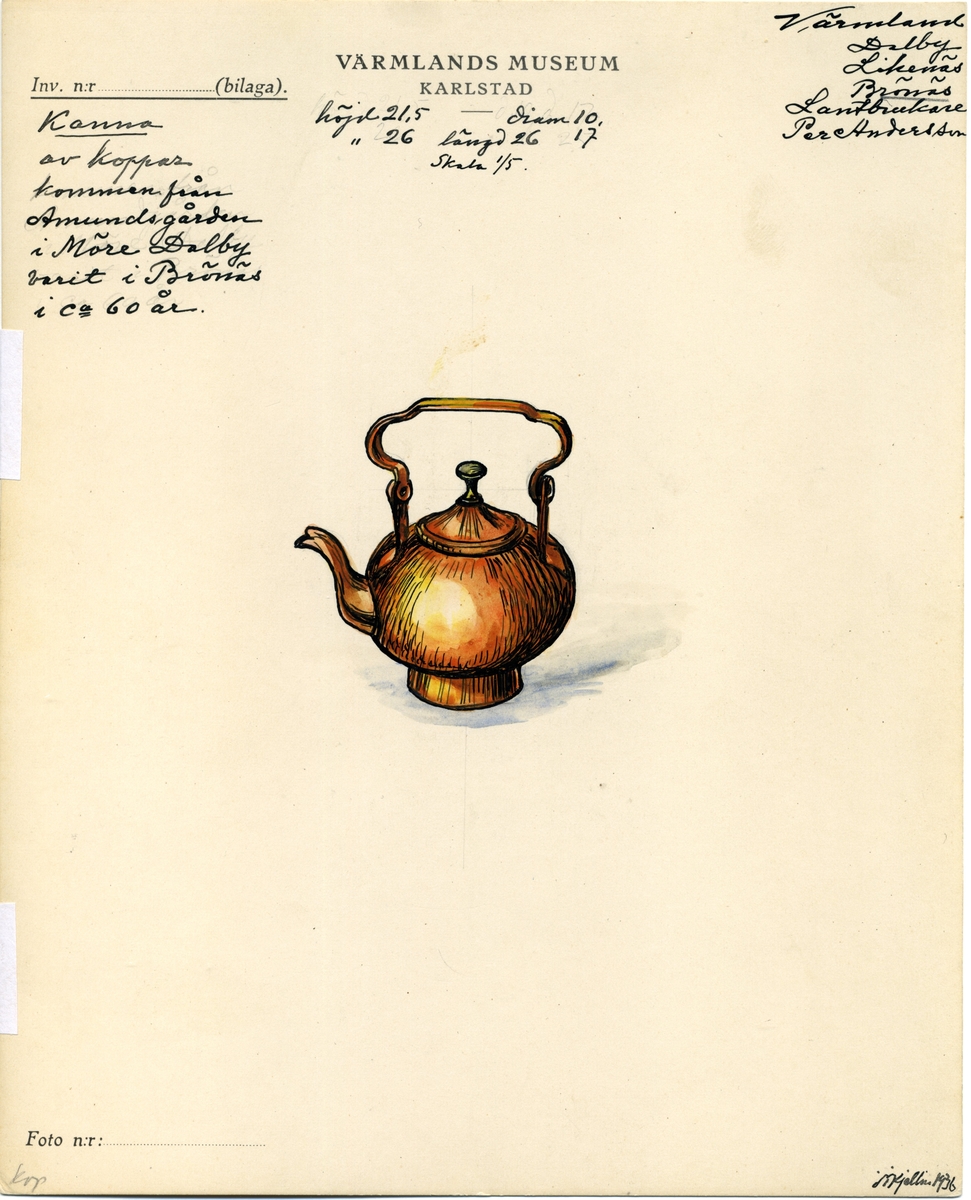 VÄRMLANDS MUSEUM
KARLSTAD
Inv. n:r (bilaga).
Värmland
Dalby
Likenäs
Brönäs
Lantbrukare
Per Andersson
höjd 21,5 diam 10,
" 26 längd 26 17
Skala 1/5.
Kanna
av koppar
kommen från
Amundsgården
i Möre Dalby
varit i Brönäs
i ca 60 år.
Foto n:r:
kop
1936